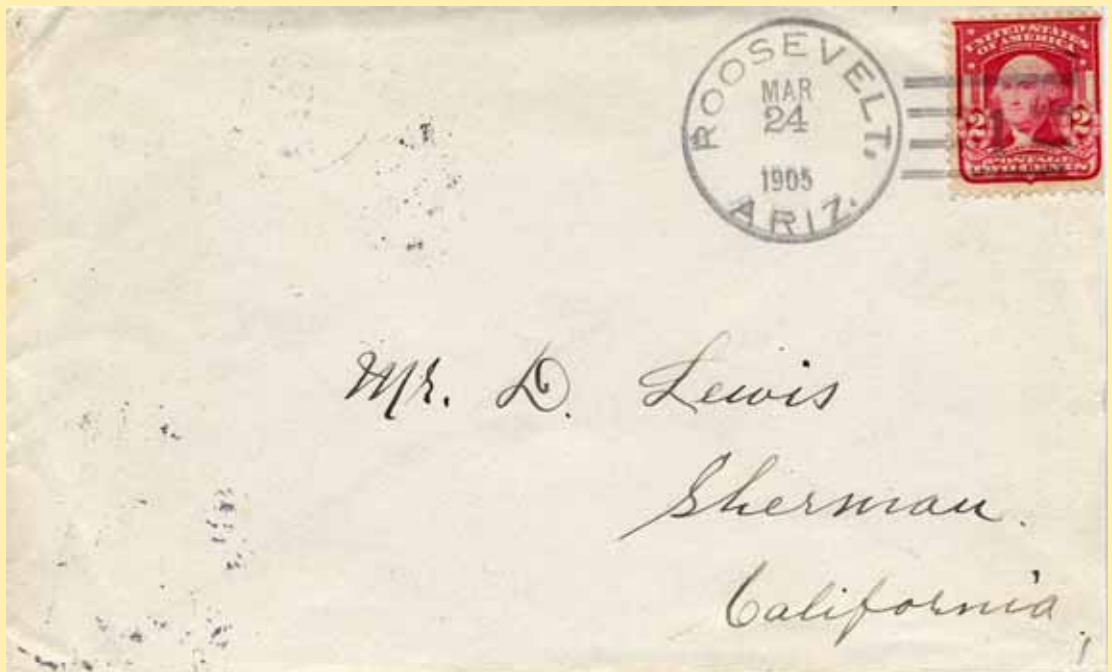 ROOSEVELT,
MAR
24
1905
ARIZ.
UNITED STATES
OF AMERICA
2 2
POSTAGE
Mr. D. Lewis
Sherman.
California